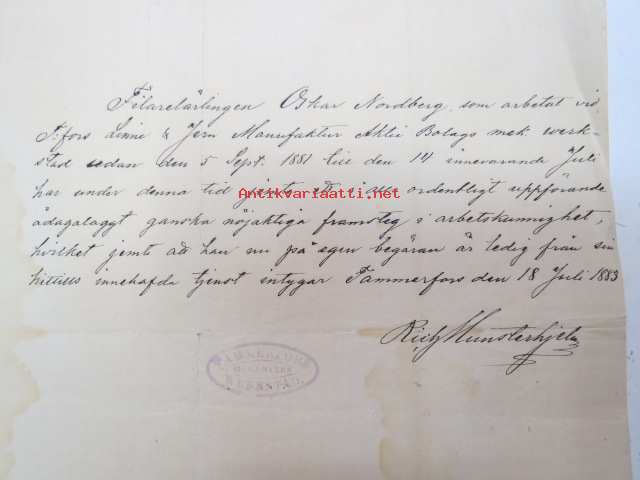 Filarelärlingen Oskar Nordberg, som arbetat vid
T:fors Linne & Jern Manufaktur Aktie Bolags mek. werk-
stad sedan den 5 Sept. 1881 till den 14 innevarande Juli
har under denna tid jemte ett i allo ordentligt uppförande
Antikvariaatti.net
ådagalagt ganska nöjaktiga framsteg i arbetskunnighet,
hvilket jemte att han nu på egen begäran är ledig från sin
hittills innehafda tjenst intygar Tammerfors den 18 Juli 1883
Munsterhjelm
TAMMERFORS
MEKANISKA
WERKSTAD